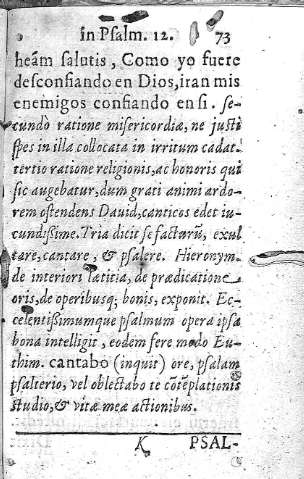 in Psalm. 12. 73
heãm salutis, Como yo fuere
desconfiando en Dios, iran mis
enemigos confiando en si. se-
cundò ratione misericordiæ, ne justi
spes in illa collocata in irritum cadat
tertio ratione religionis, ac honoris qui
sic augebatur, dum grati animi ardo-
rem ostendens Dauid, canticos edet iu-
cundissime. Tria dicit se facturũ, exul
tare, cantare, & psalere. Hieronym.
de interiori lætitia, de prædicatione
oris, de operibusq; bonis, exponit. Ec-
celentissimumque psalmum opera ipsa
bona intelligit, eodem fere modo Eu-
thim. cantabo (inquit) ore, psalam
psalterio, vel oblectabo te cõtẽplationis
studio, & vitæ meæ actionibus.
K PSAL-